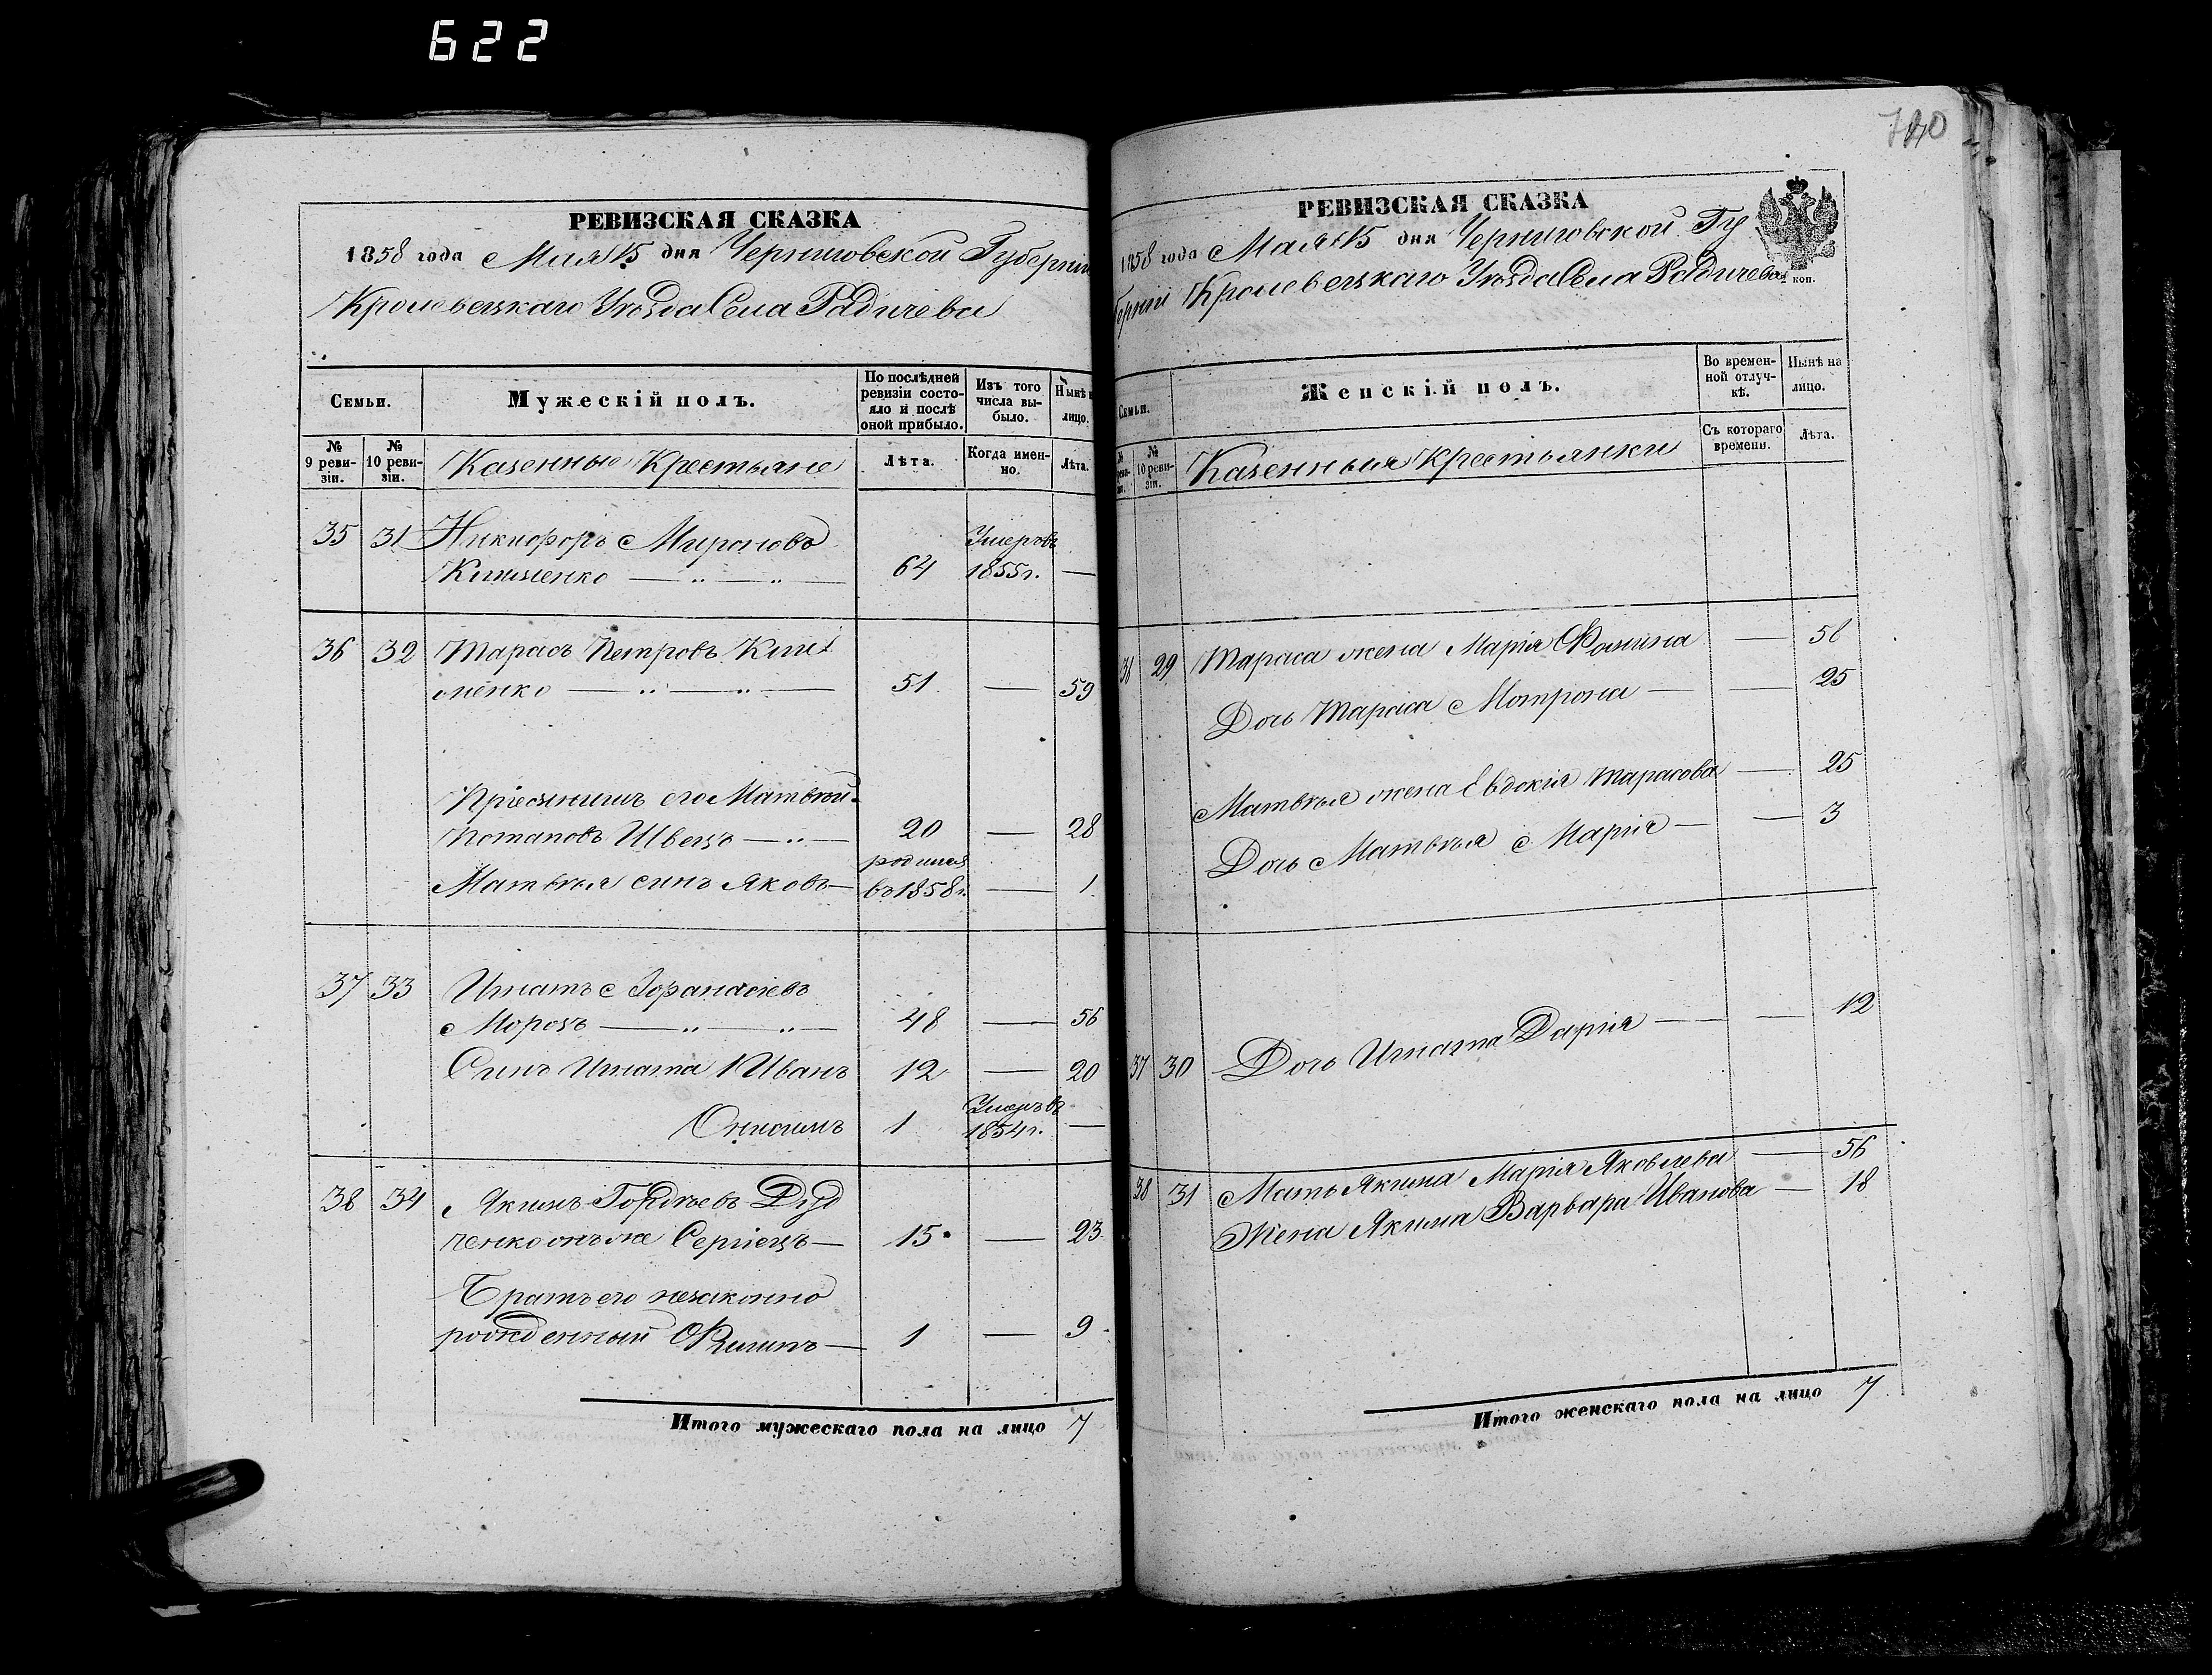 622
740
РЕВИЗСКАЯ СКАЗКА
1858 года Мая 15 дня Черниговской Губерніи
Кролевецкаго Уѣзда Села Радичева
Семьи.
Мужескій полъ.
По послѣдней ревизіи состояло и послѣ оной прибыло.
Изъ того числа выбыло.
Нынѣ на лицо.
№ 9 ревизіи.
№ 10 ревизіи.
Казенные Крестьяне
Лѣта.
Когда именно.
Лѣта.
35 31 Никифоръ Мироновъ Умеръ въ
Клименко — „ — „ — 64 1855 г. —
36 32 Тарасъ Петровъ Кли
менко — „ — „ — 51 — 59
Пріемышъ его Матвѣй
Потаповъ Швецъ — „ — 20 — 28
родился
Матвѣя синъ Яковъ — въ 1858 г. — 1
37 33 Игнатъ Афанасіевъ
Морозъ — „ — „ — 48 — 56
Синъ Игната 1 Иванъ 12 — 20
Умеръ въ
Онисимъ 1 1854 г. —
38 34 Якимъ Гордѣевъ Дуд
ченко онъ же Сергіецъ — 15 — 23
Братъ его незаконно
рожденный Филипъ — 1 — 9
Итого мужескаго пола на лицо 7
РЕВИЗСКАЯ СКАЗКА
1858 года Мая 15 дня Черниговской Гу
берніи Кролевецкаго Уѣзда Села Радичева
коп.
Семьи.
Женскій полъ.
Во временной отлучкѣ.
Нынѣ на лицо.
№ 10 ревизіи.
Казенныя Крестьянки
Съ котораго времени.
Лѣта.
36 29 Тараса жена Марія Фомина — 58
Дочь Тараса Мотрона — — 25
Матвѣя жена Евдокія Тарасова — 25
Дочь Матвѣя Марія — — 3
37 30 Дочь Игната Дарія — — 12
38 31 Мать Якима Марія Яковлева — 56
Жена Якима Варвара Иванова — 18
Итого женскаго пола на лицо 7